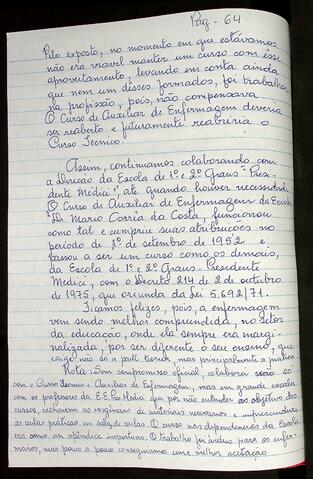 Pág - 64
Pelo exposto, no momento em que estávamos
não era viável manter um curso com esse
aproveitamento, levando em conta ainda
que nem um desses formados, foi trabalhar
na profissão, pois, não compensava
O Curso de Auxiliar de Enfermagem deveria
ser reaberto e futuramente reabriria o
Curso Tecnico.
Assim, continuamos colaborando com
a Direcão da Escola de 1º e 2º Graus "Presi-
dente Médici", até quando houver necessidade
O Curso de Auxiliar de Enfermagem da Escola
"Dr. Mario Corrêa da Costa, funcionou
como tal e cumpriu suas atribuicões no
período de 1º de setembro de 1952 e
passou a ser um curso como os demais,
da Escola de 1º e 2º Graus - Presidente
Medici, com o Decreto 214 de 2 de outubro
de 1975, que oriunda da Lei 5.692/71.
Ficamos felizes, pois, a enfermagem
vem sendo melhor compreendida, no setor
da educacão, onde ela sempre era margi-
nalizada, por ser diferente o seu ensino, que
exige não só a parte teorica, mas principalmente a prática
Nota: Sem compromisso oficial, colaborei não só
com o Curso Tecnico e Auxiliar de Enfermagem, mas em grande escala
com os professores da E.E. Pres Medici que por não entender os objetivos dos
cursos, rechavam as exigências de materiais necessarios e
as aulas práticas em sala de aulas. O curso nas dependencias da Escola
era como um apêndice inoportuno. O trabalho foi árduo para os enfer-
meiros, mas pouco a pouco conseguiamos uma melhor aceitação.